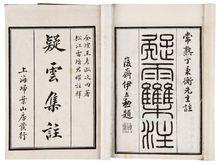 常熟丁秉衡先生註
疑雨集注
峻齋伊立勳題
金壇王彥泓次回著
松江雷瑨君曜註釋
疑雲集註
上海埽葉山房發行